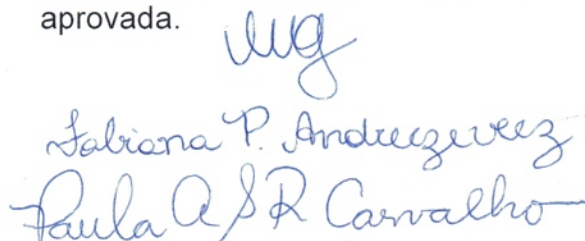 aprovada.
Fabiana P. Andreczevecz
Paula A S R Carvalho